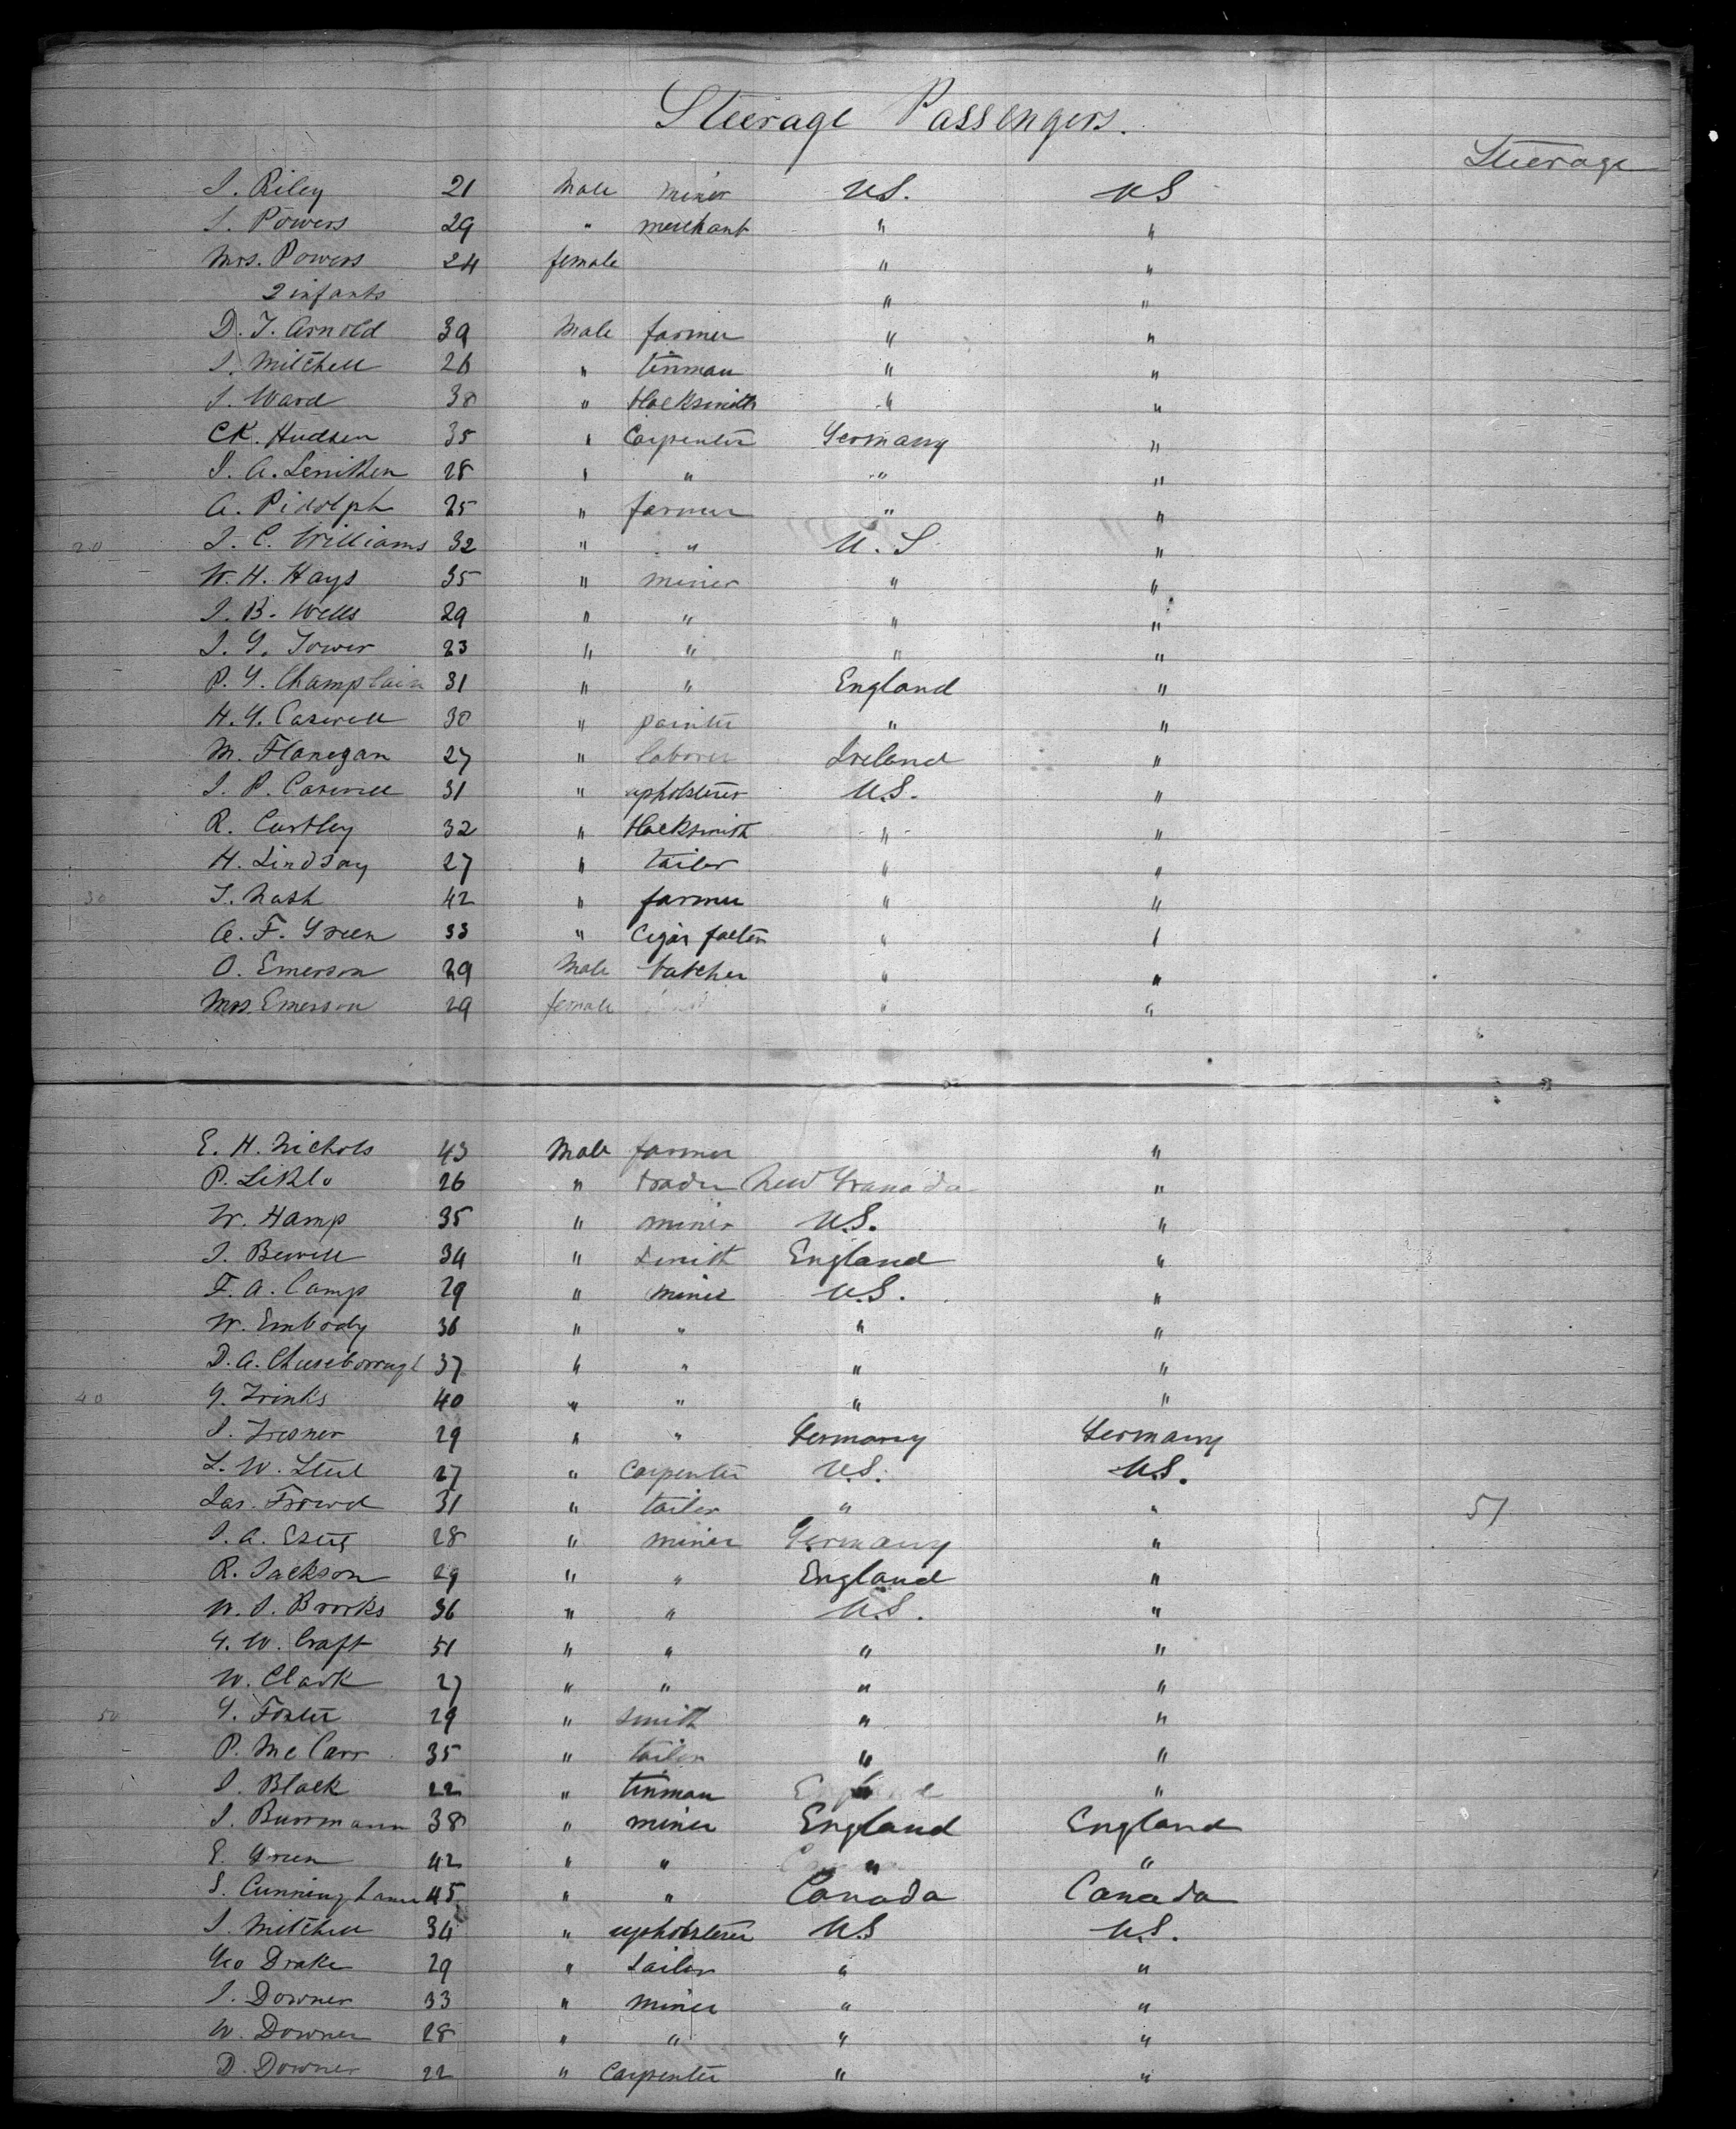 Steerage Passengers.
Steerage
J. Riley 21 Male miner U.S. U S
J. Powers 29 " merchant " "
Mrs. Powers 24 female " "
2 infants " "
D. T. Arnold 39 Male farmer " "
J. Mitchell 26 " tinman " "
J. Ward 38 " blacksmith " "
CK. Hudsen 35 " Carpenter Germany "
J. A. Lenithen 28 " " " "
A. Pidolph 25 " farmer " "
20 J. C. Williams 32 " " U. S "
W. H. Hays 35 " miner " "
J. B. Wells 29 " " " "
J. G. Tower 23 " " " "
P. G. Champlain 31 " " England "
H. G. Caswell 30 " painter " "
M. Flanegan 27 " laborer Ireland "
J. P. Caswell 31 " upholsterer U.S. "
R. Curtley 32 " blacksmith " "
H. Lindsay 27 " tailor " "
30 T. Nash 42 " farmer " "
A. F. Green 33 " Cigar " "
O. Emerson 29 Male butcher " "
Mrs. Emerson 29 female " "
E. H. Nichols 43 Male farmer "
P. 26 " trader New Granada "
W. Hamp 35 " miner U.S. "
J. Bewell 34 " smith England "
F. A. Camp 29 " miner U.S. "
W. Embody 36 " " " "
D. A. Cheeseborough 37 " " " "
40 G. Trinks 40 " " " "
J. Tresner 29 " " Germany Germany
L. W. Steel 27 " Carpenter U.S. U.S.
Jas. Frowd 31 " tailor " " 51
J. A. 28 " miner Germany "
R. Jackson 29 " " England "
W. J. Brooks 36 " " U.S. "
G. W. Craft 51 " " " "
W. Clark 27 " " " "
50 G. Foster 29 " smith " "
P. McCarr 35 " tailor " "
J. Black 22 " tinman " "
J. Burrmann 38 " miner England England
E. Green 42 " " " "
S. Cunningham 45 " " Canada Canada
J. Mitchell 34 " upholsterer U.S U.S.
Geo Drake 29 " Sailor " "
J. Downer 33 " miner " "
W. Downer 28 " " " "
D. Downer 22 " Carpenter " "